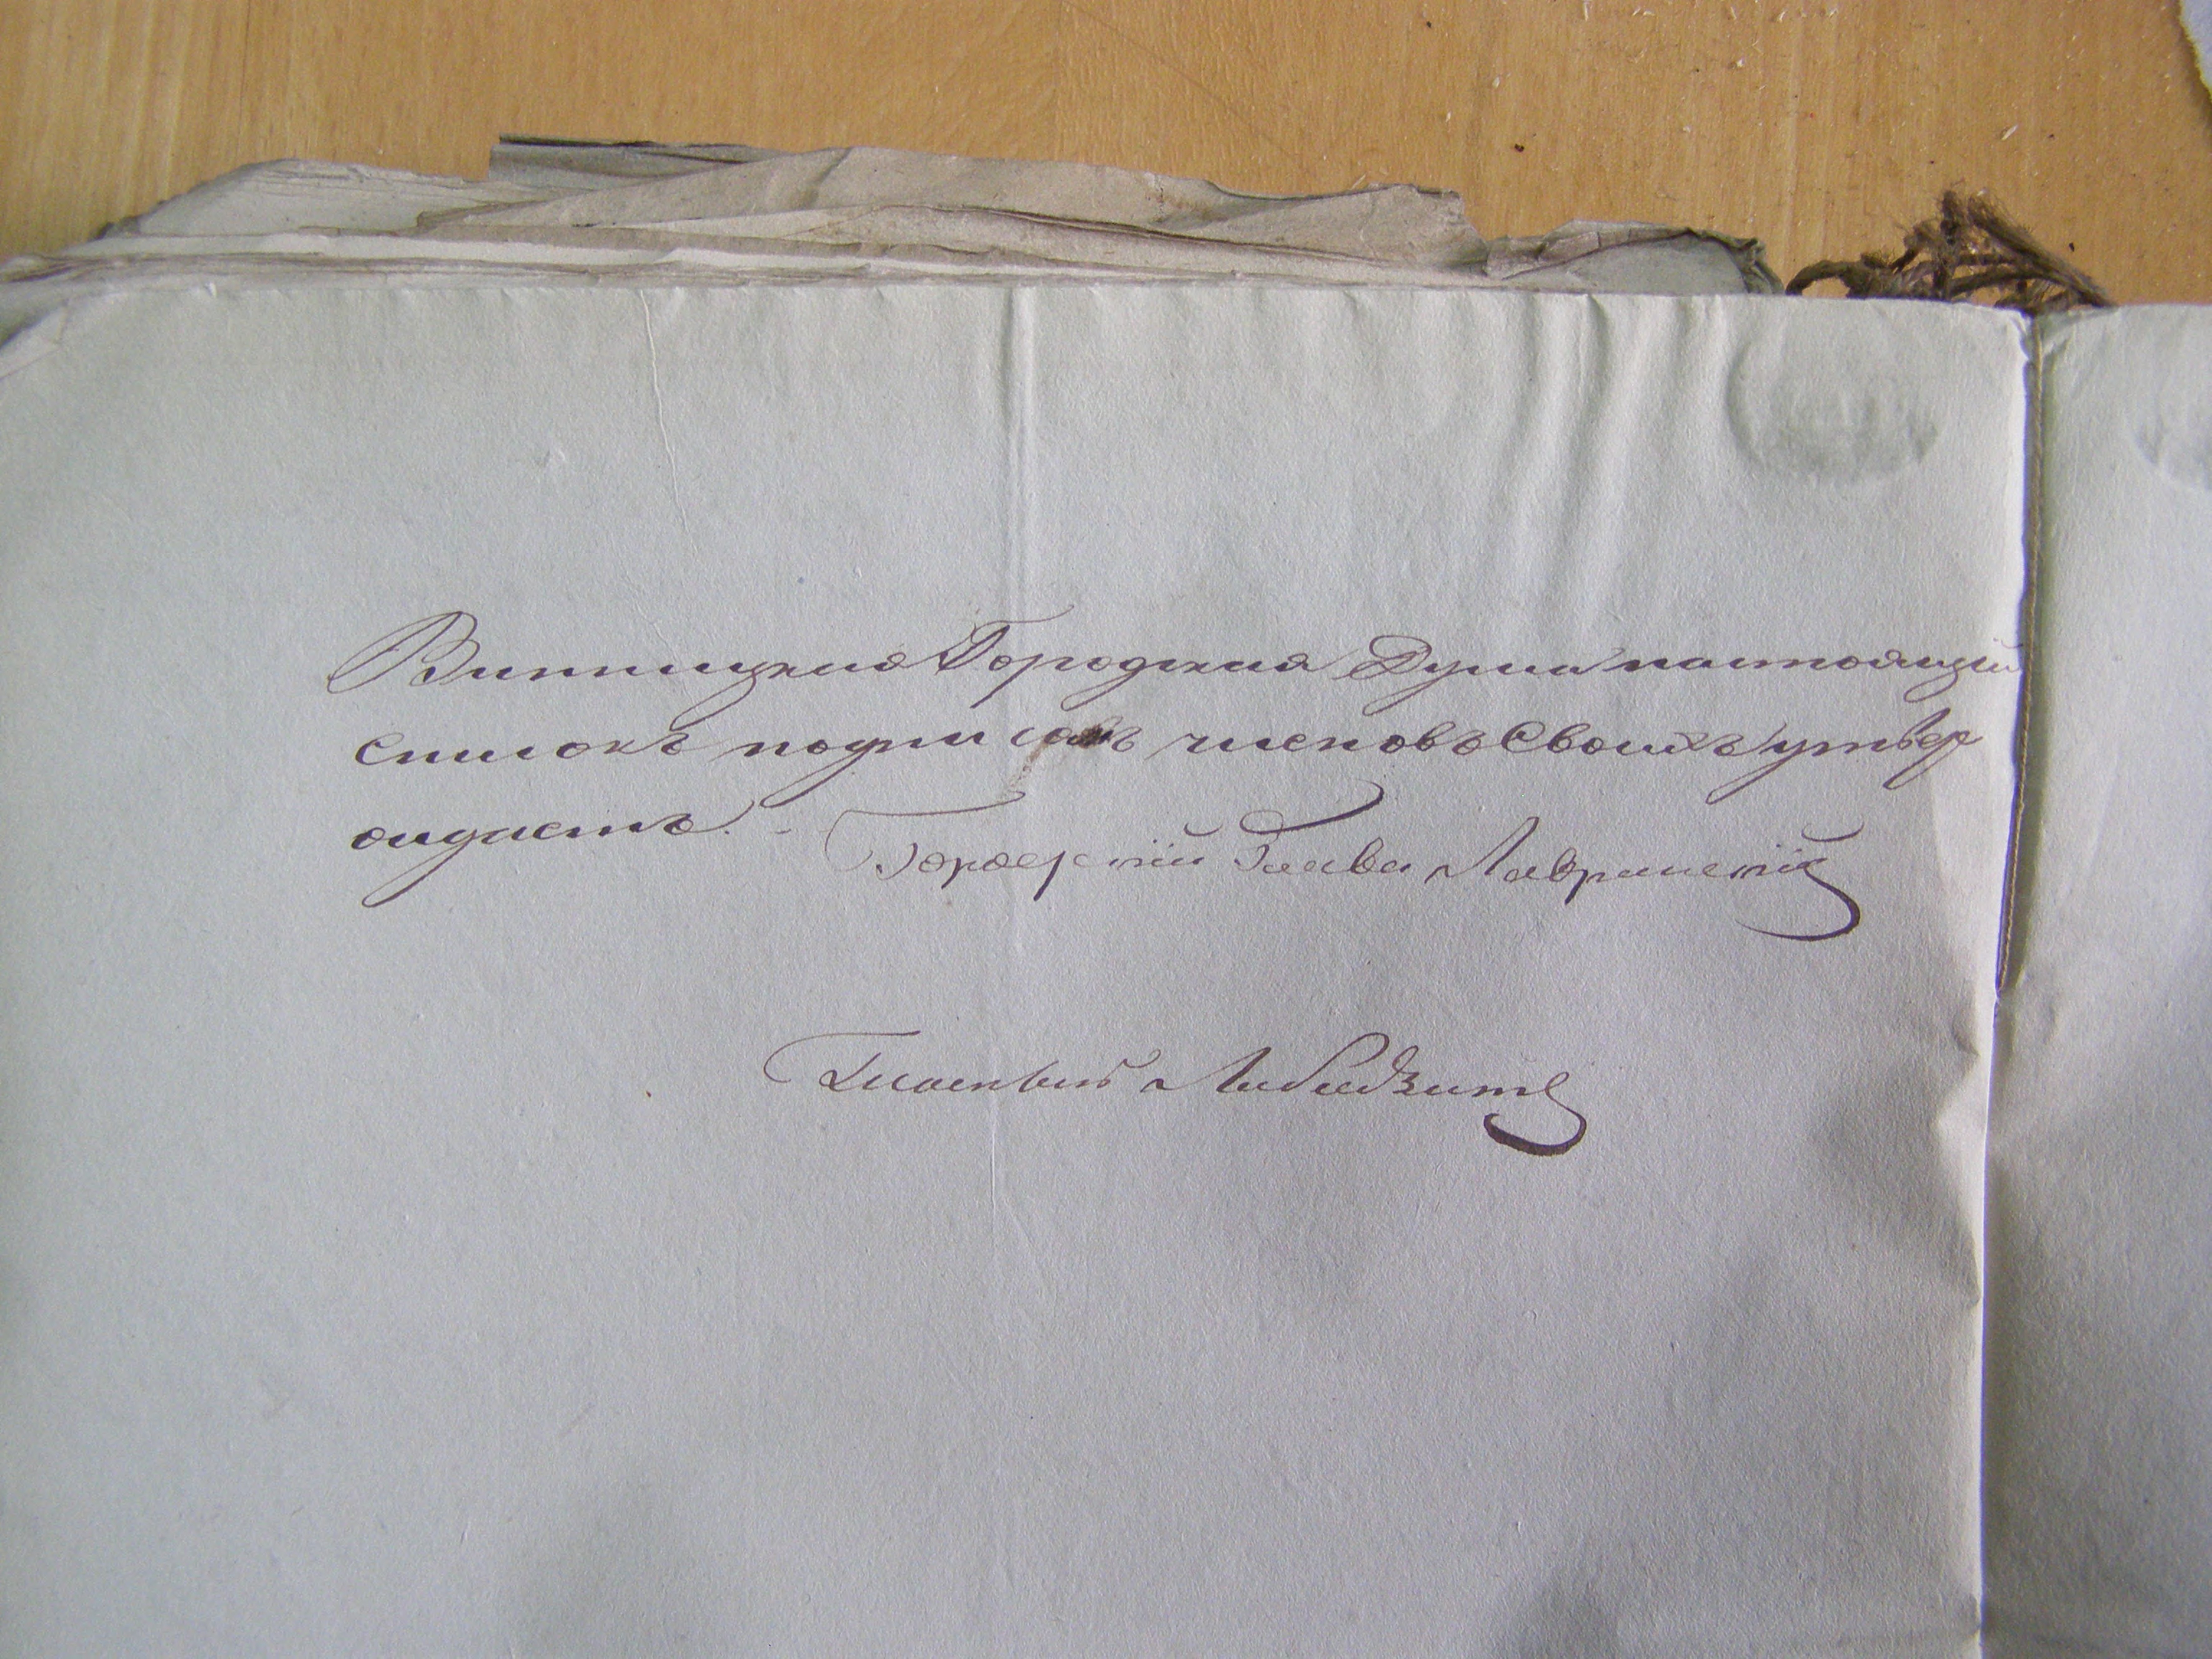 Винницкая Городская Дума настоящій
списокъ подписомъ членовъ Своихъ утвер
ждаетъ. - Городскій Глава Лавринскій
Гласный